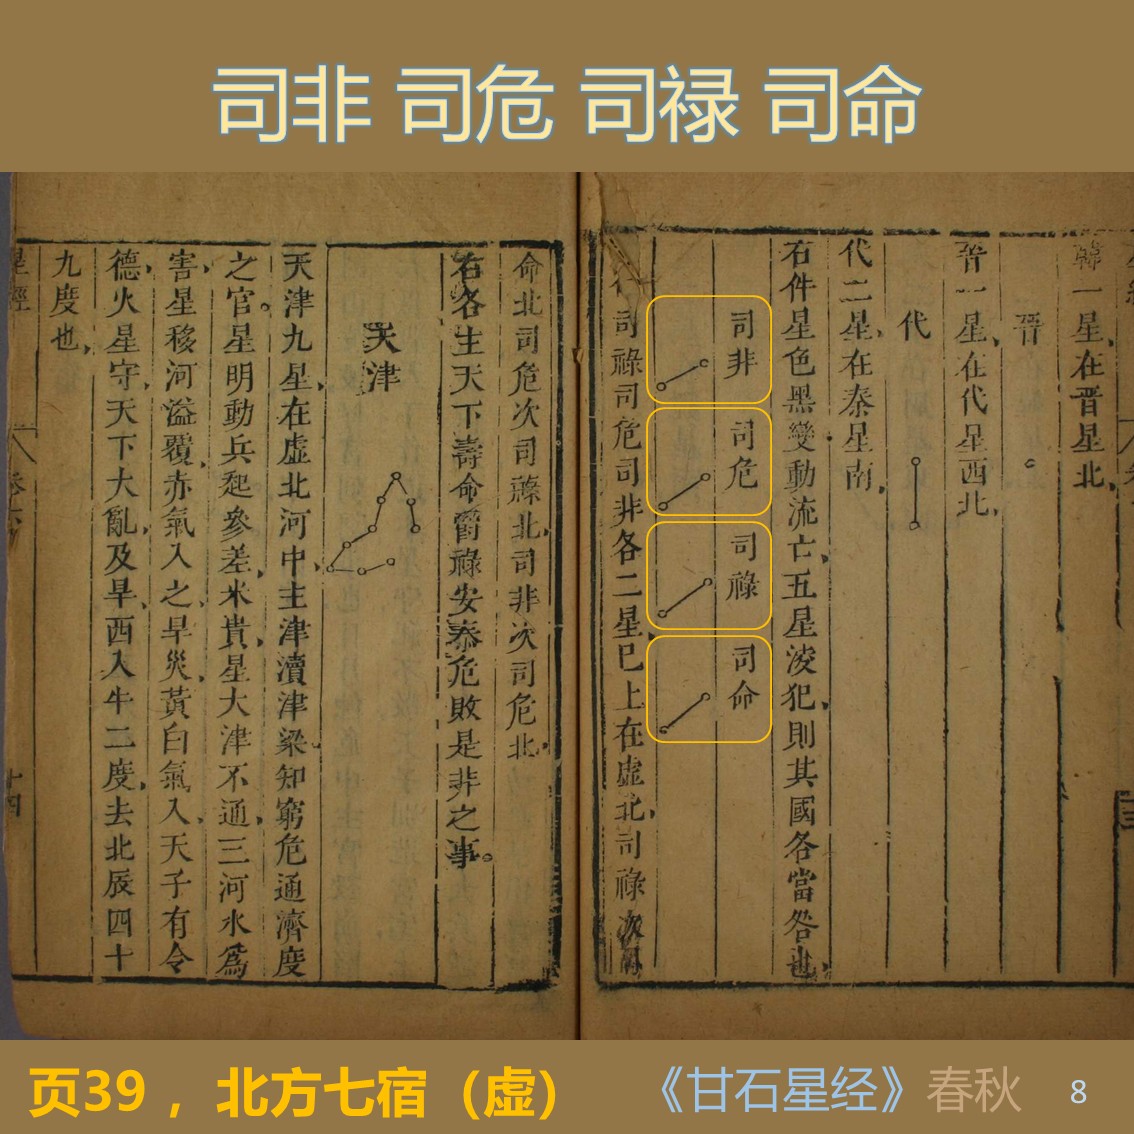 司非 司危 司禄 司命
韓一星在晋星北
晋
晋一星在代星西北
代
代二星在秦星南
右件星色黑變動流亡五星淩犯則其國各當咎也
司非
司危
司祿
司命
司祿司危司非各二星巳上在虛北司祿次司
命北司危次司祿北司非次司危北
右各主天下壽命爵祿安泰危敗是非之事。
天津
天津九星在虛北河中主津瀆津梁知窮危通濟度
之官。星明動兵起參差米貴星大津不通三河水爲
害星移河溢覆赤氣入之旱災黃白氣入天子有令
德火星守天下大亂及旱西入牛二度去北辰四十
九度也
星經
十四
页39 ，北方七宿（虚）
《甘石星经》春秋
8